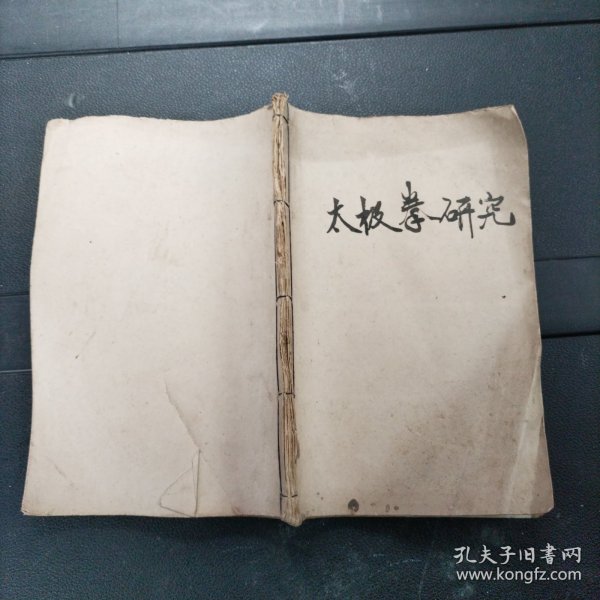 太极拳研究
孔夫子旧书网
www.kongfz.com